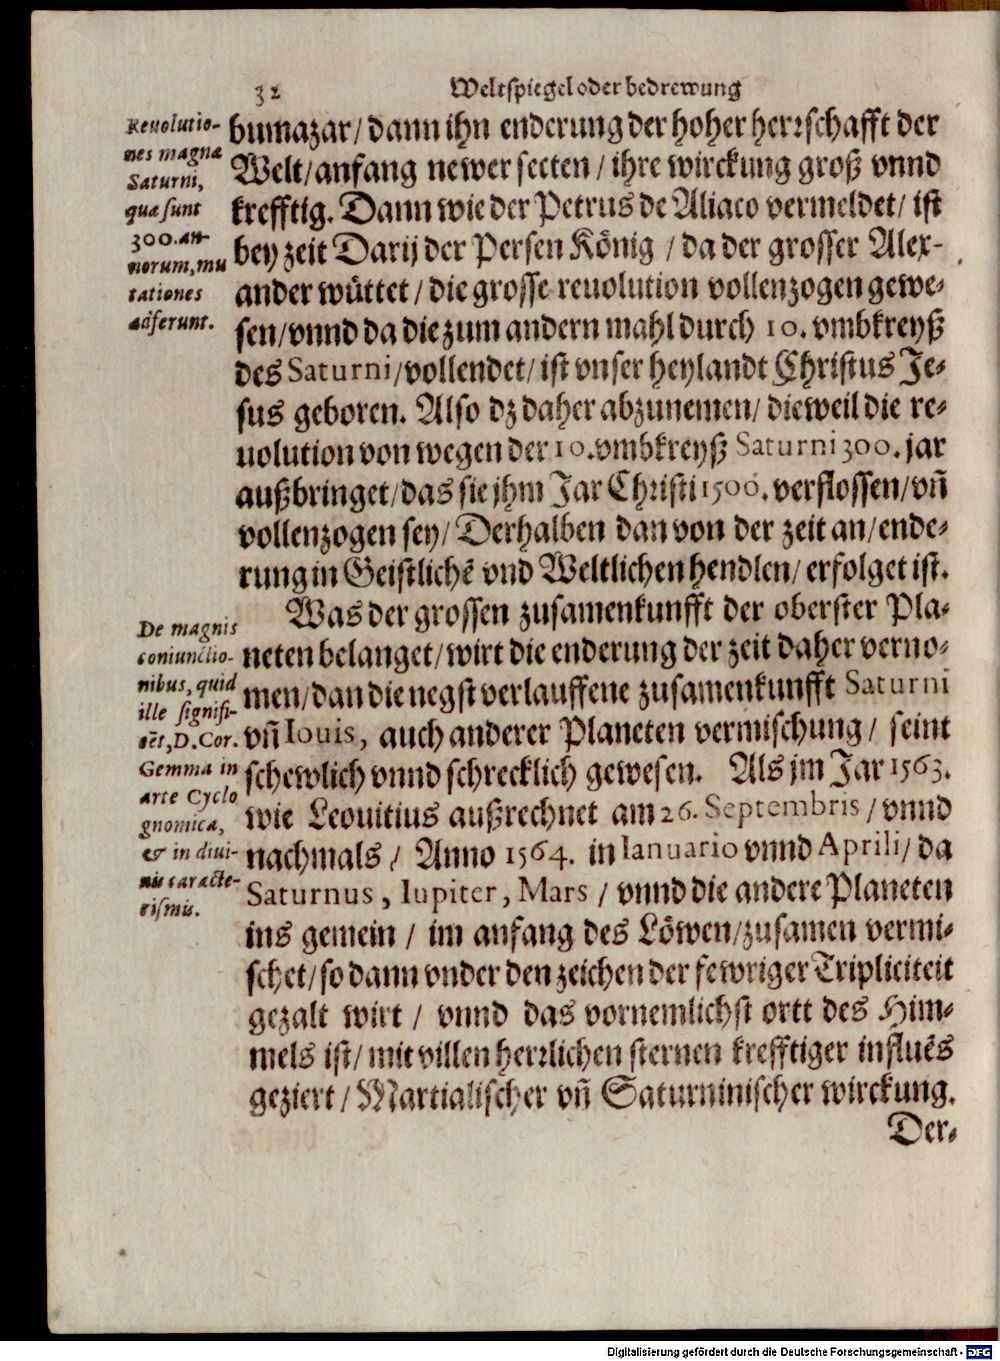 32
Weltspiegel oder bedrewung
Reuolutio-
nes magnæ
Saturni,
quæ sunt
300. an-
norum, mu
tationes
adferunt.
bumazar/ dann ihn enderung der hoher herrschafft der
Welt/ anfang newer secten / ihre wirckung groß vnnd
krefftig. Dann wie der Petrus de Aliaco vermeldet/ ist
bey zeit Darij der Persen König / da der grosser Alex-
ander wüttet / die grosse reuolution vollenzogen gewe-
sen/ vnnd da die zum andern mahl durch 10. vmbkreyß
des Saturni/ vollendet/ ist vnser heylandt Christus Je-
sus geboren. Also dz daher abzunemen/ dieweil die re-
uolution von wegen der 10. vmbkreyß Saturni 300. jar
außbringet/ das sie jhm Jar Christi 1500. verflossen/ vñ
vollenzogen sey/ Derhalben dan von der zeit an/ ende-
rung in Geistlichẽ vnd Weltlichen hendlen/ erfolget ist.
De magnis
coniunctio-
nibus, quid
ille signifi-
cẽt, D. Cor.
Gemma in
arte Cyclo
gnomica,
& in diui-
nis caracte-
rismis.
Was der grossen zusamenkunfft der oberster Pla-
neten belanget/ wirt die enderung der zeit daher verno-
men/ dan die negst verlauffene zusamenkunfft Saturni
vñ Iouis, auch anderer Planeten vermischung / seint
schewlich vnnd schrecklich gewesen. Als jm Jar 1563.
wie Leouitius außrechnet am 26. Septembris / vnnd
nachmals / Anno 1564. in Ianuario vnnd Aprili/ da
Saturnus, Iupiter, Mars / vnnd die andere Planeten
ins gemein / im anfang des Löwen/ zusamen vermi-
schet/ so dann vnder den zeichen der fewriger Tripliciteit
gezalt wirt / vnnd das vornemlichst ortt des Him-
mels ist/ mit villen herrlichen sternen krefftiger influẽs
geziert / Martialischer vñ Saturninischer wirckung.
Der-
Digitalisierung gefördert durch die Deutsche Forschungsgemeinschaft - DFG